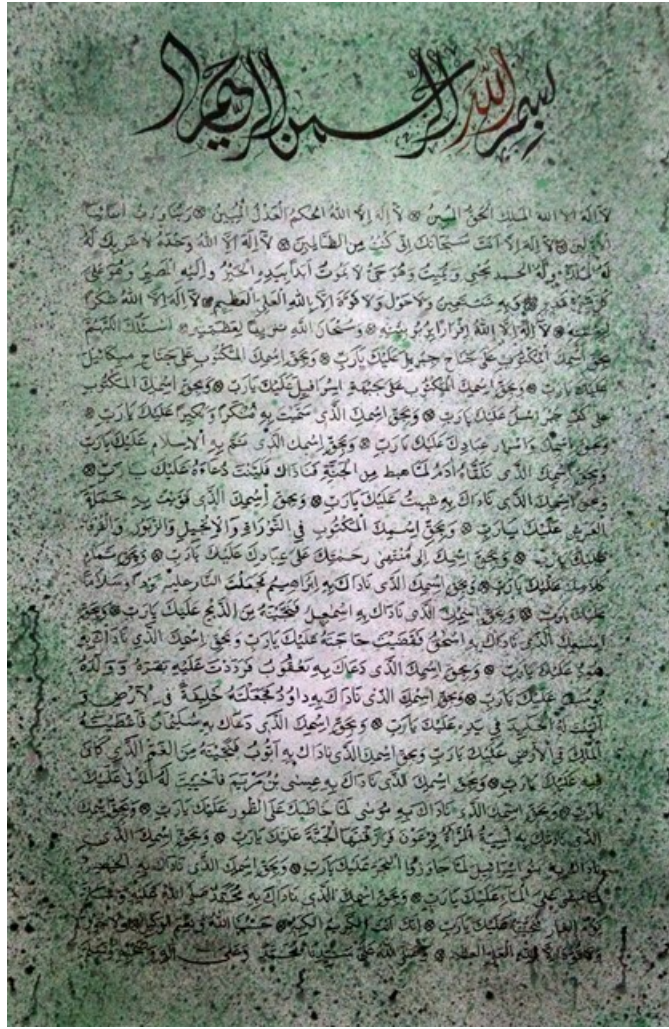 بسم الله الرحمن الرحيم
لا إله إلا الله الملك الحق المبين ۞ لا إله إلا الله الحكم العدل المبين ۞ ربنا ورب آبائنا
الأولين ۞ لا إله إلا أنت سبحانك إني كنت من الظالمين ۞ لا إله إلا الله وحده لا شريك له
له الملك وله الحمد يحيي ويميت وهو حي لا يموت أبدا بيده الخير وإليه المصير وهو على
كل شيء قدير ۞ وبه نستعين ولا حول ولا قوة إلا بالله العلي العظيم ۞ لا إله إلا الله شكرا
لنعمته ۞ لا إله إلا الله إقرارا بربوبيته ۞ وسبحان الله تنزيها لعظمته ۞ أسئلك اللهم
بحق اسمك المكتوب على جناح جبريل عليك يارب ۞ وبحق اسمك المكتوب على جناح ميكائيل
عليك يارب ۞ وبحق اسمك المكتوب على جبهة اسرافيل عليك يارب ۞ وبحق اسمك المكتوب
على كف عزرائيل عليك يارب ۞ وبحق اسمك الذي سميت به منكرا ونكيرا عليك يارب ۞
وبحق اسمك واسرار عبادك عليك يارب ۞ وبحق اسمك الذي تم به الاسلام عليك يارب
وبحق اسمك الذي تلقاه آدم لما هبط من الجنة فناداك فلبيت دعاءه عليك يارب ۞
وبحق اسمك الذي ناداك به شيث عليك يارب ۞ وبحق اسمك الذي قويت به حملة
العرش عليك يارب ۞ وبحق اسمك المكتوب في التوراة والانجيل والزبور والفرقان
عليك يارب ۞ وبحق اسمك الى منتهى رحمتك على عبادك عليك يارب ۞ وبحق تمام
كلامك عليك يارب ۞ وبحق اسمك الذي ناداك به ابراهيم فجعلت النار عليه بردا وسلاما
عليك يارب ۞ وبحق اسمك الذي ناداك به اسمعيل فنجيته من الذبح عليك يارب ۞ وبحق
اسمك الذي ناداك به اسحق فقضيت حاجته عليك يارب وبحق اسمك الذي ناداك به
هود عليك يارب ۞ وبحق اسمك الذي دعاك به يعقوب فرددت عليه بصره وولده
يوسف عليك يارب ۞ وبحق اسمك الذي ناداك به داود فجعلته خليفة في الارض و
ألنت له الحديد في يده عليك يارب ۞ وبحق اسمك الذي دعاك به سليمان فاعطيته
الملك في الأرض عليك يارب وبحق اسمك الذي ناداك به أيوب فنجيته من الغم الذي كان
فيه عليك يارب ۞ وبحق اسمك الذي ناداك به عيسى بن مريم فاحييت له الموتى عليك
يارب ۞ وبحق اسمك الذي ناداك به موسى لما خاطبك على الطور عليك يارب ۞ وبحق اسمك
الذي نادتك به آسية امرأة فرعون ورزقتها الجنة عليك يارب ۞ وبحق اسمك الذي
ناداك به بنو اسرائيل لما جاوزوا البحر عليك يارب ۞ وبحق اسمك الذي ناداك به الخضر
لما مشى على الماء عليك يارب ۞ وبحق اسمك الذي ناداك به محمد صلى الله عليه وسلم
يوم الغار فنجيته عليك يارب ۞ إنك أنت الكريم الكبير ۞ حسبنا الله ونعم الوكيل ۞ ولا حول
ولا قوة إلا بالله العلي العظيم ۞ وصلى الله على سيدنا محمد وعلى آله وصحبه وسلم